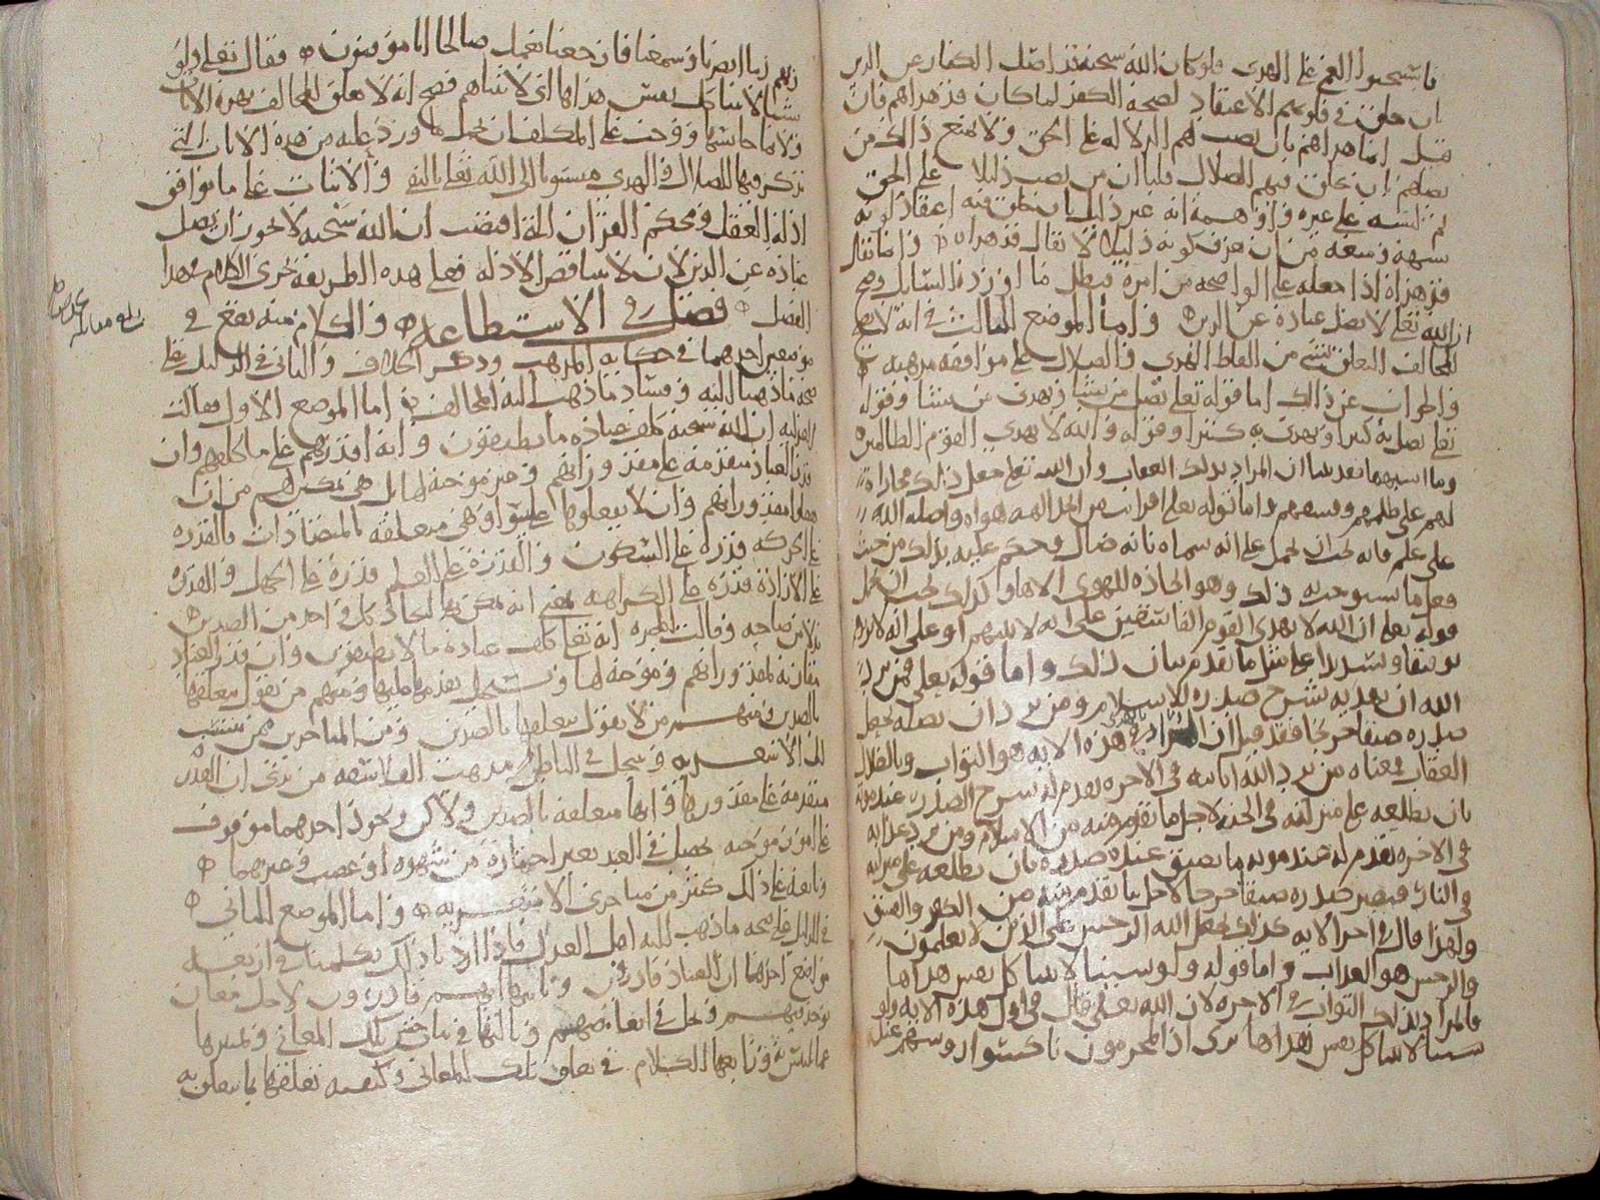 فاستحبوا العمى على الهدى فلو كان الله سبحنه قد اضل الكفار عن الدين
ان خلق في قلوبهم الاعتقاد لصحة الكفر لما كان قد هداهم فان
قيل انما هداهم بان نصب لهم الدلالة على الحق ولا يمنع ذلك من
يضلهم ان يخلق فيهم الضلال قلنا ان من نصب دليلا على الحق
ثم لبسه على غيره واوهمه انه غير ذلك بان خلق فيه اعتقاد كونه
شبهة ومنعه من ان يعرف كونه دليلا لا يقال قد هداه وانما يقال
قد هداه اذا جعله على الواضحة من امره فبطل ما اورده السايل وصح
ان الله تعلى لا يضل عباده عن الدين واما الموضع الثالث في انه لا يصح
للمخالف التعلق بشي من الفاظ الهدى والضلال على موافقة مذهبه
والجواب عن ذلك اما قوله تعلى يضل من يشا ويهدي من يشا وقوله
تعلى يضل به كثيرا ويهدي به كثيرا وقوله والله لا يهدي القوم الظالمين
وما اشبهها فقد بينا ان المراد بذلك العقاب وان الله تعلى جعل ذلك مجازاة
لهم على ظلمهم وفسقهم واما قوله تعلى افرايت من اتخذ الهه هواه واضله الله
على علم فانه يجب ان يحمل على انه سماه بانه ضال وحكم عليه بذلك من حيث
فعل ما يستوجب به ذلك وهو اتخاذه للهوى الاها وكذلك يجب ان يحمل
قوله تعلى ان الله لا يهدي القوم الفاسقين على انه لا يثيبهم او على انه لا يزيدهم
توفيقا وتسديدا على مثل ما تقدم بيان ذلك واما قوله تعلى فمن يرد
الله ان يهديه يشرح صدره للاسلام ومن يرد ان يضله يجعل
صدره ضيقا حرجا فقد قيل ان المراد بالهدى في هذه الاية هو الثواب وبالضلال
العقاب فمعناه من يرد الله اثابته في الاخرة بعد موته يشرح الصدره عند موته
بان يطلعه على منزلته في الجنة لاجل ما تقدم منه من الاسلام ومن يرد عذابه
في الاخرة بعد موته عند موته ما يضيق عنده صدره بان يطلعه على منزلته
في النار فيصير صدره ضيقا حرجا لاجل ما تقدم منه من الكفر والفسق
ولهذا قال في اخر الاية كذلك يجعل الله الرجس على الذين لا يعلمون
والرجس هو العذاب واما قوله ولو شينا لاتينا كل نفس هداها
فالمراد بذلك الثواب في الاخرة لان الله تعلى قال في اول هذه الاية ولو
شينا لاتينا كل نفس هداها ترى اذا المجرمون ناكسوا رووسهم عند
ربهم ربنا ابصرنا وسمعنا فارجعنا نعمل صالحا انا موقنون فقال تعلى ولو
شينا لاتينا كل نفس هداها اي لاثبناهم فصح انه لا تعلق للمخالف بهذه الايات
ولا ما جانسها ووجب على المكلف ان يحمل ما ورد عليه من هذه الايات التي
تذكر فيها الضلال والهدى منسوبا الى الله تعلى بالنفي والاثبات على ما يوافق
ادلة العقل ومحكم القران التي اقتضت ان الله سبحنه لا يجوز ان يضل
عباده عن الدين لان لا يتناقض الادلة فعلى هذه الطريقة يجري الكلام في هذا
الفصل فصل في الاستطاعة والكلام منه يقع في
موضعين احدهما في حكاية المذهب وذكر الخلاف والثاني في الدليل على
صحة ما ذهبنا اليه وفساد ما ذهب اليه المخالف اما الموضع الاول فقالت
العدلية ان الله سبحنه كلف عباده ما يطيقون وانه اقدرهم على ما كلفهم وان
قدر العباد متقدمة على مقدوراتهم وغير موجبة لها بل هي تمكن لهم من ان
يفعلوا مقدوراتهم وان لا يفعلوها وهي متعلقة بالمتضادات فالقدرة
على الحركة قدرة على السكون والقدرة على العلم قدرة على الجهل والقدرة
على الارادة قدرة على الكراهة بمعنى انه يمكن بها ايجاد كل واحد من الضدين
بدلا من صاحبه وقالت المجبرة انه تعلى كلف عباده ما لا يطيقون وان قدر العباد
مقارنة لمقدوراتهم وموجبة لها ويستحيل تقدمها عليها ومنهم من يقول بتعلقها
بالضدين ومنهم من لا يقول بتعلقها بالضدين ومن المتاخرين ممن ينتسب
الى الاشعرية وينتحل في الباطن مذهب الفلاسفة من يدعي ان القدر
متقدمة على مقدورها وانها متعلقة بالضدين ولاكن وجود احدهما موقوف
على امور موجبة تحصل في العبد بغير اختياره من شهوة او غضب وغيرهما
وتابعه على ذلك كثير من متاخري الاشعرية واما الموضع الثاني
في الدليل على صحة ما ذهب اليه اهل العدل فاذا اردنا ذلك تكلمنا في اربعة
مواضع احدها ان العباد قادرون وثانيها انهم قادرون لاجل معان
توجد فيهم وتحل في ابعاضهم وثالثها في بيان تلك المعاني وتميزها
عما التبس به ورابعها الكلام في تعلق تلك المعاني وكيفية تعلقها بما يتعلق به